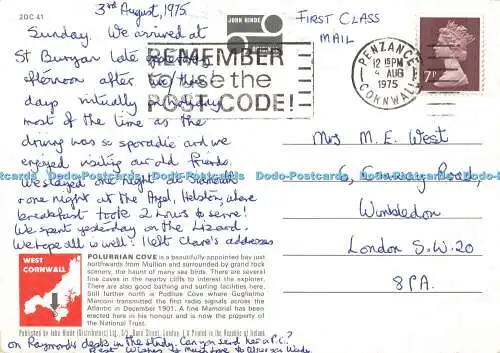 2DC 41
3rd August, 1975
Sunday. We arrived at
St Buryan late yesterday
afternoon after three
days virtually holiday
most of the time as the
driving was so sporadic and we
enjoyed visiting our old friends.
We stayed one night at
& one night at the Angel, Helston, where
breakfast took 2 hours to serve!
We spent yesterday on the Lizard.
We hope all is well. I left Clare's addresses
on Raymond's desk in the study. Can you send her a P.C.?
Best Wishes
JOHN HINDE
REMEMBER
to use the
POST CODE!
FIRST CLASS
MAIL
PENZANCE
12 15 PM
4 AUG
1975
CORNWALL
7P
Mrs M. E. West
6, Conway Road,
Wimbledon
London S.W.20
8PA.
WEST
CORNWALL
POLURRIAN COVE is a beautifully appointed bay just
northwards from Mullion and surrounded by grand rock
scenery, the haunt of many sea birds. There are several
fine caves in the nearby cliffs to interest the explorer.
There are also good bathing and surfing facilities here.
Still further north is Poldhue Cove where Guglielmo
Marconi transmitted the first radio signals across the
Atlantic in December 1901. A fine Memorial has been
erected here in his honour and is now the property of
the National Trust.
Published by John Hinde (Distributors) Ltd., Dane Street, London, Printed in the Republic of Ireland.
Dodo-Postcards Dodo-Postcards Dodo-Postcards Dodo-Postcards